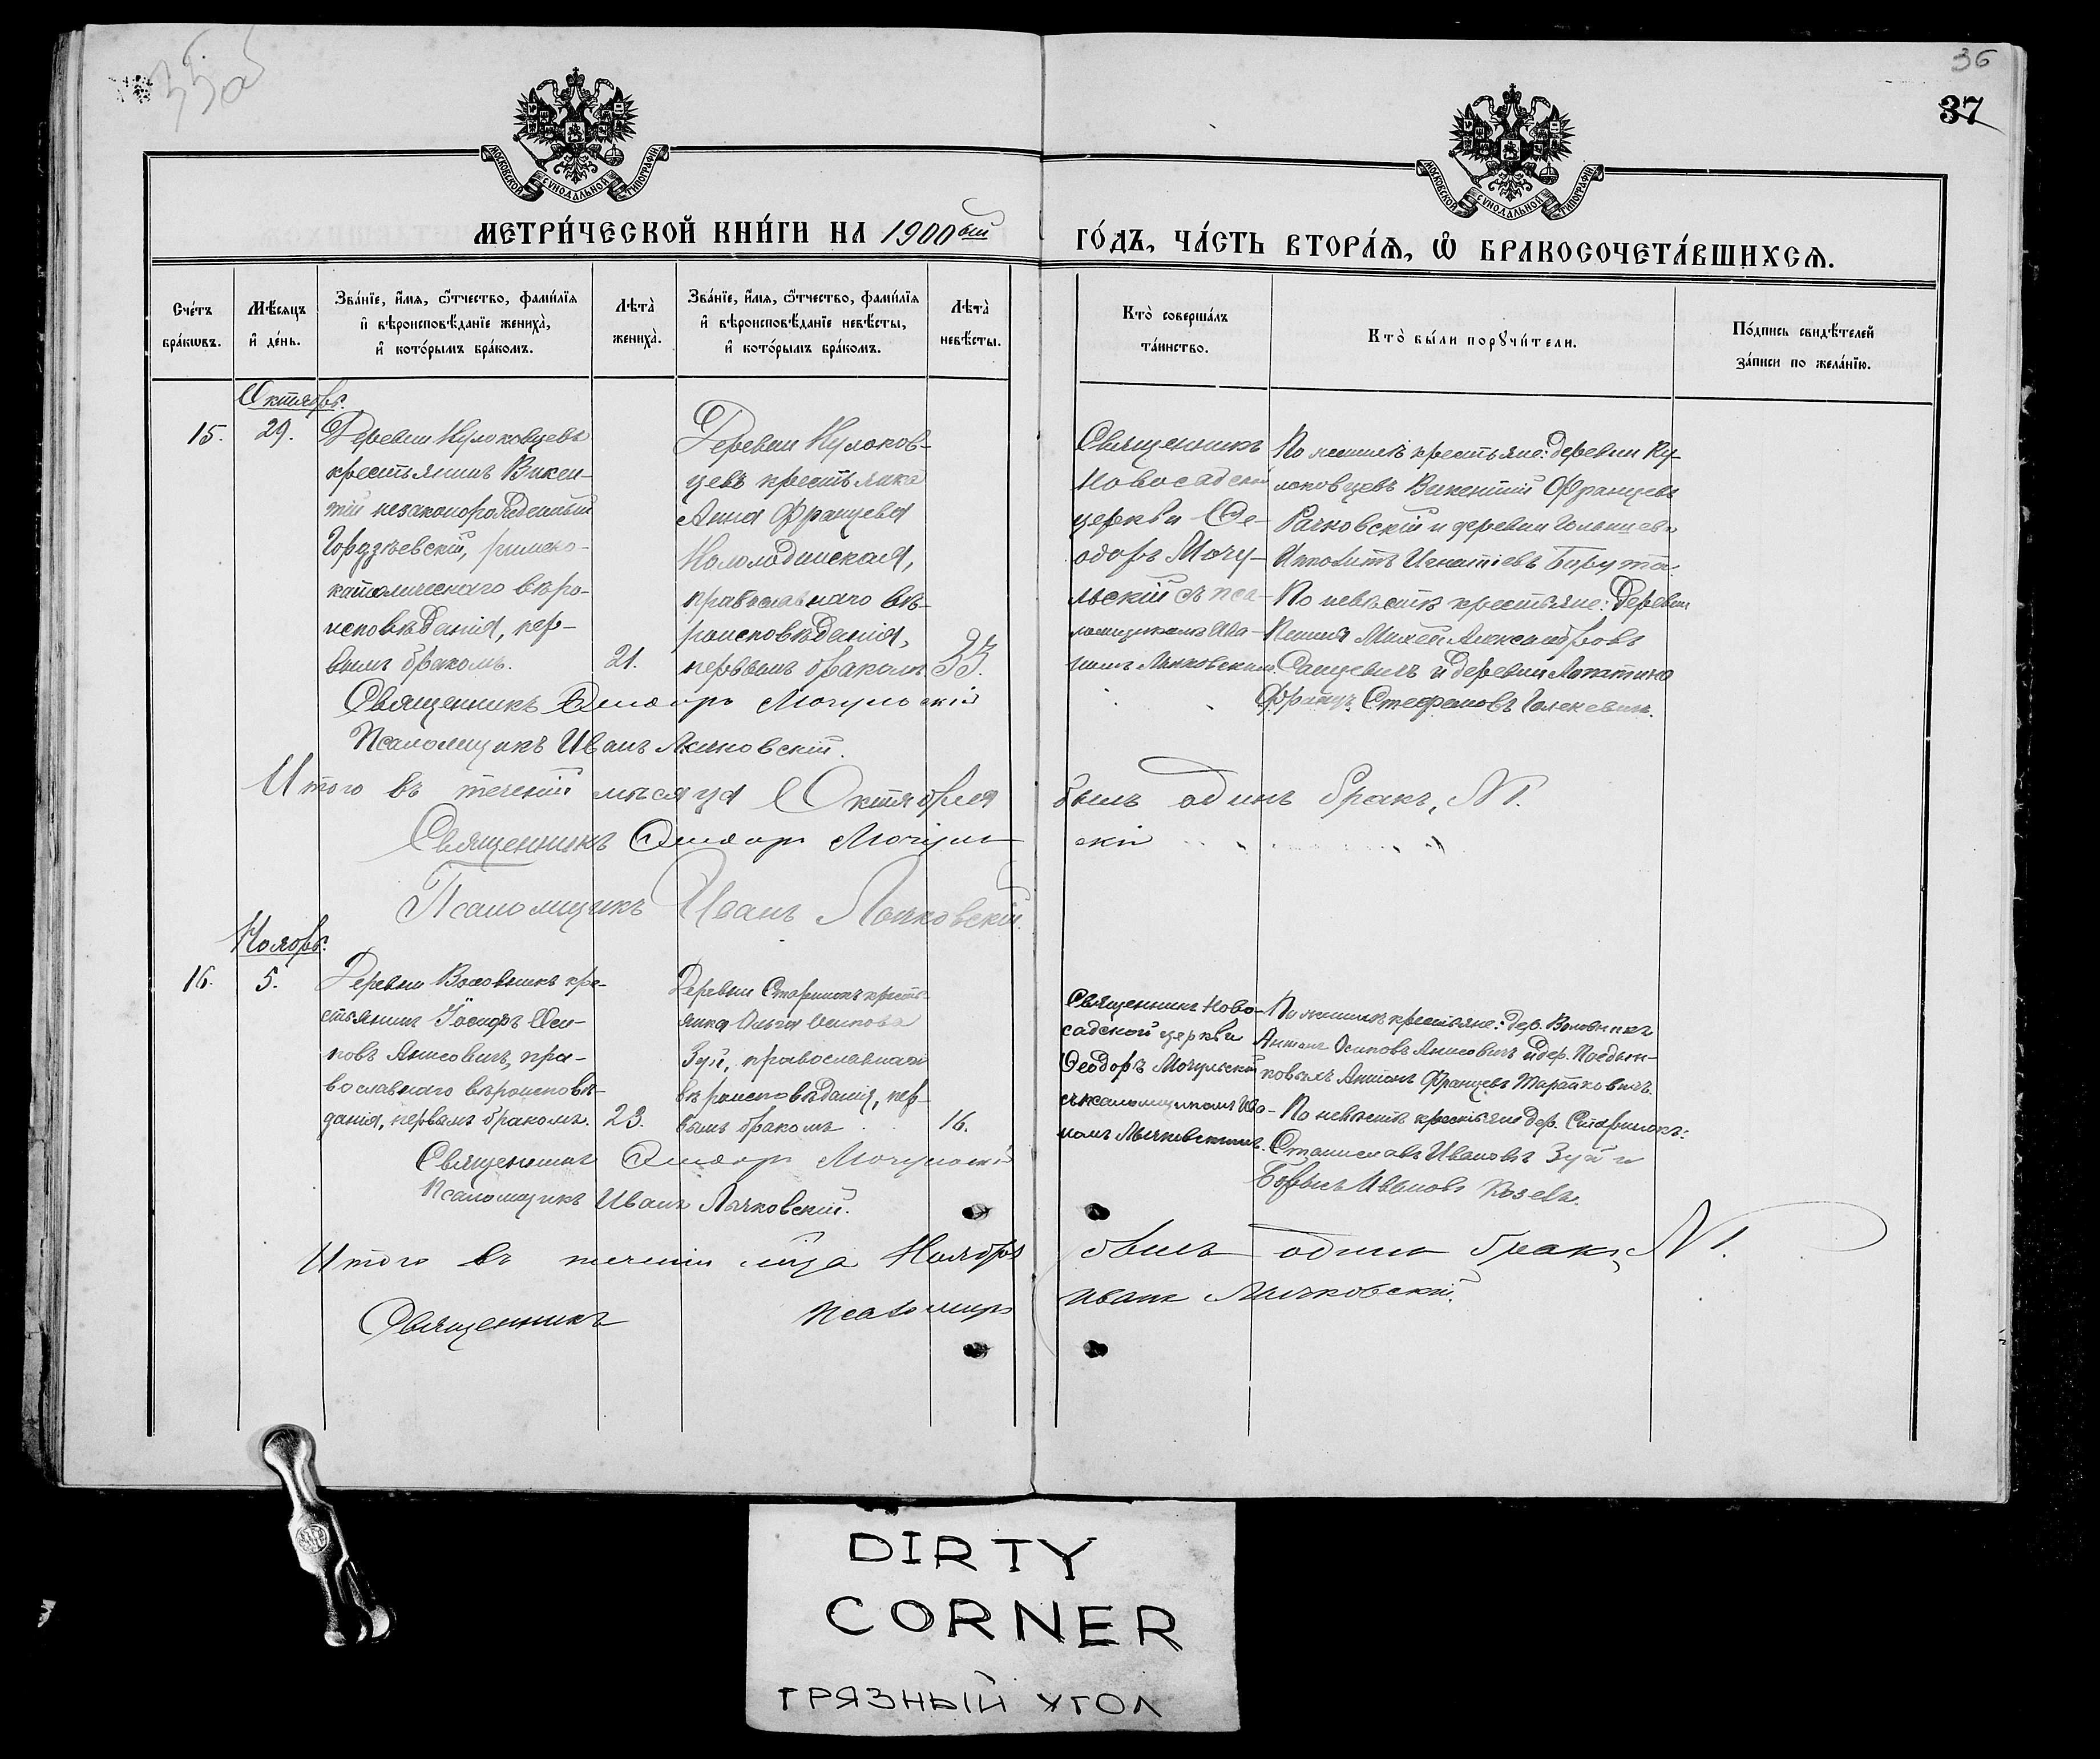 35об
36
37
МОСКОВСКОЙ СѴНОДАЛЬНОЙ ТИПОГРАФІИ
МОСКОВСКОЙ СѴНОДАЛЬНОЙ ТИПОГРАФІИ
МЕТРИ́ЧЕСКОЙ КНИ́ГИ НА 1900ый
ГО́ДЪ, ЧА́СТЬ ВТОРА́Ѧ, Ѡ҆ БРАКОСОЧЕТА́ВШИХСѦ.
Сче́тъ бра́кѡвъ.
Мѣ́сяцъ и҆ де́нь.
Зва́нїе, и҆́мѧ, ѻ҆́тчество, фами́лїѧ и҆ вѣроисповѣ́данїе жениха̀, и҆ кото́рымъ бра́комъ.
Лѣта̀ жениха̀.
Зва́нїе, и҆́мѧ, ѻ҆́тчество, фами́лїѧ и҆ вѣроисповѣ́данїе невѣ́сты, и҆ кото́рымъ бра́комъ.
Лѣта̀ невѣ́сты.
Кто̀ соверша́лъ та́инство.
Кто̀ бы́ли порꙋчи́тели.
По́дпись свидѣ́телей за́писи по жела́нїю.
Октябрь.
15.
29.
Деревни Кулаковцевъ
крестьянинъ Викен-
тій незаконорожденный
римско-
католическаго вѣро-
исповѣданія, пер-
вымъ бракомъ.
21.
Деревни Кулаков-
цевъ крестьянка
Анна Францева
православнаго вѣ-
роисповѣданія,
первымъ бракомъ
33.
Священникъ
Новосадской
церкви Ѳе-
одоръ Мочу-
льскій съ пса-
ломщикомъ Ива-
номъ
По женихѣ крестьяне: деревни Ку-
лаковцевъ Викентій Францевъ
Рачковскій и деревни
Ипполитъ Игнатіевъ Борута.
По невѣстѣ крестьяне: деревни
Михей Александровъ
и деревни Лопатино
Францъ Стефановъ
Священникъ Ѳеодоръ Мочульскій
Псаломщикъ Иванъ
Итого въ теченіи мѣсяца Октября
былъ одинъ бракъ, №1.
Священникъ Ѳеодоръ Мочуль
скій
Псаломщикъ Иванъ
Ноябрь.
16.
5.
Деревни Воловникъ кре-
стьянинъ Іосифъ Оси-
повъ Анисовичъ, пра-
вославнаго вѣроисповѣ-
данія, первымъ бракомъ.
23.
Деревни Старинокъ кресть-
янка Ольга Осипова
Зуй, православнаго
вѣроисповѣданія, пер-
вымъ бракомъ
16.
Священникъ Ново-
садской церкви
Ѳеодоръ Мочульскій
съ псаломщикомъ Ива-
номъ
По женихѣ крестьяне: дер. Воловникъ
Антонъ Осиповъ Анисовичъ и дер.
Антонъ Францевъ
По невѣстѣ крестьяне дер. Старинокъ:
Станиславъ Ивановъ Зуй и
Ивановъ Козелъ.
Священникъ Ѳеодоръ Мочульскій
Псаломщикъ Иванъ
Итого въ теченіи мѣсяца Ноября
былъ одинъ бракъ, №1.
Священникъ
Псаломщ
Иванъ
DIRTY
CORNER
ГРЯЗНЫЙ УГОЛ